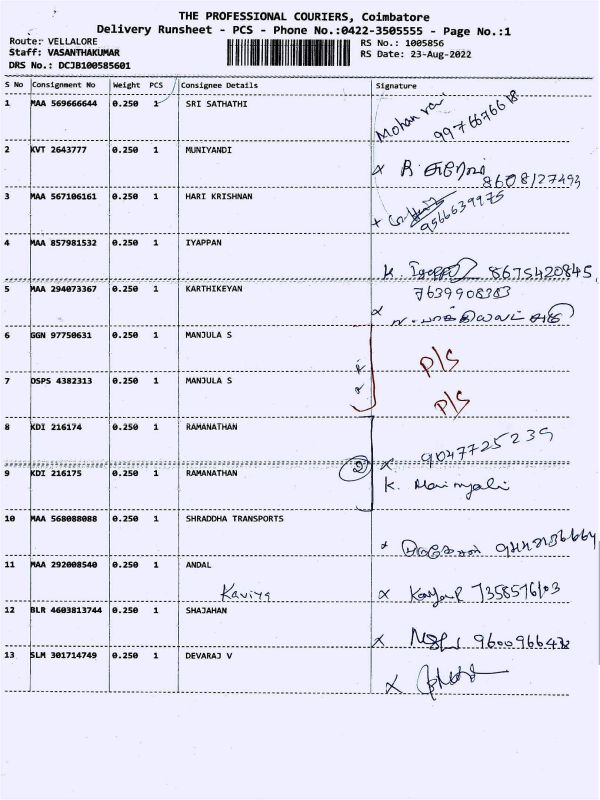 THE PROFESSIONAL COURIERS, Coimbatore
Delivery Runsheet - PCS - Phone No.:0422-3505555 - Page No.:1
Route: VELLALORE
RS No.: 1005856
Staff: VASANTHAKUMAR
RS Date: 23-Aug-2022
DRS No.: DCJB100585601
S No Consignment No Weight PCS Consignee Details Signature
1 MAA 569666644 0.250 1 SRI SATHATHI
Mohan
9976676618
2 KVT 2643777 0.250 1 MUNIYANDI
8608127493
3 MAA 567106161 0.250 1 HARI KRISHNAN
9566639975
4 MAA 857981532 0.250 1 IYAPPAN
K. 8675420845,
5 MAA 294073367 0.250 1 KARTHIKEYAN
7639908383
6 GGN 97750631 0.250 1 MANJULA S P/S
7 DSPS 4382313 0.250 1 MANJULA S P/S
8 KDI 216174 0.250 1 RAMANATHAN
x 9047725239
2
9 KDI 216175 0.250 1 RAMANATHAN K.
10 MAA 568088088 0.250 1 SHRADDHA TRANSPORTS
11 MAA 292008540 0.250 1 ANDAL
Kaviya x 7358576103
12 BLR 4603813744 0.250 1 SHAJAHAN
x
13 SLM 301714749 0.250 1 DEVARAJ V
x